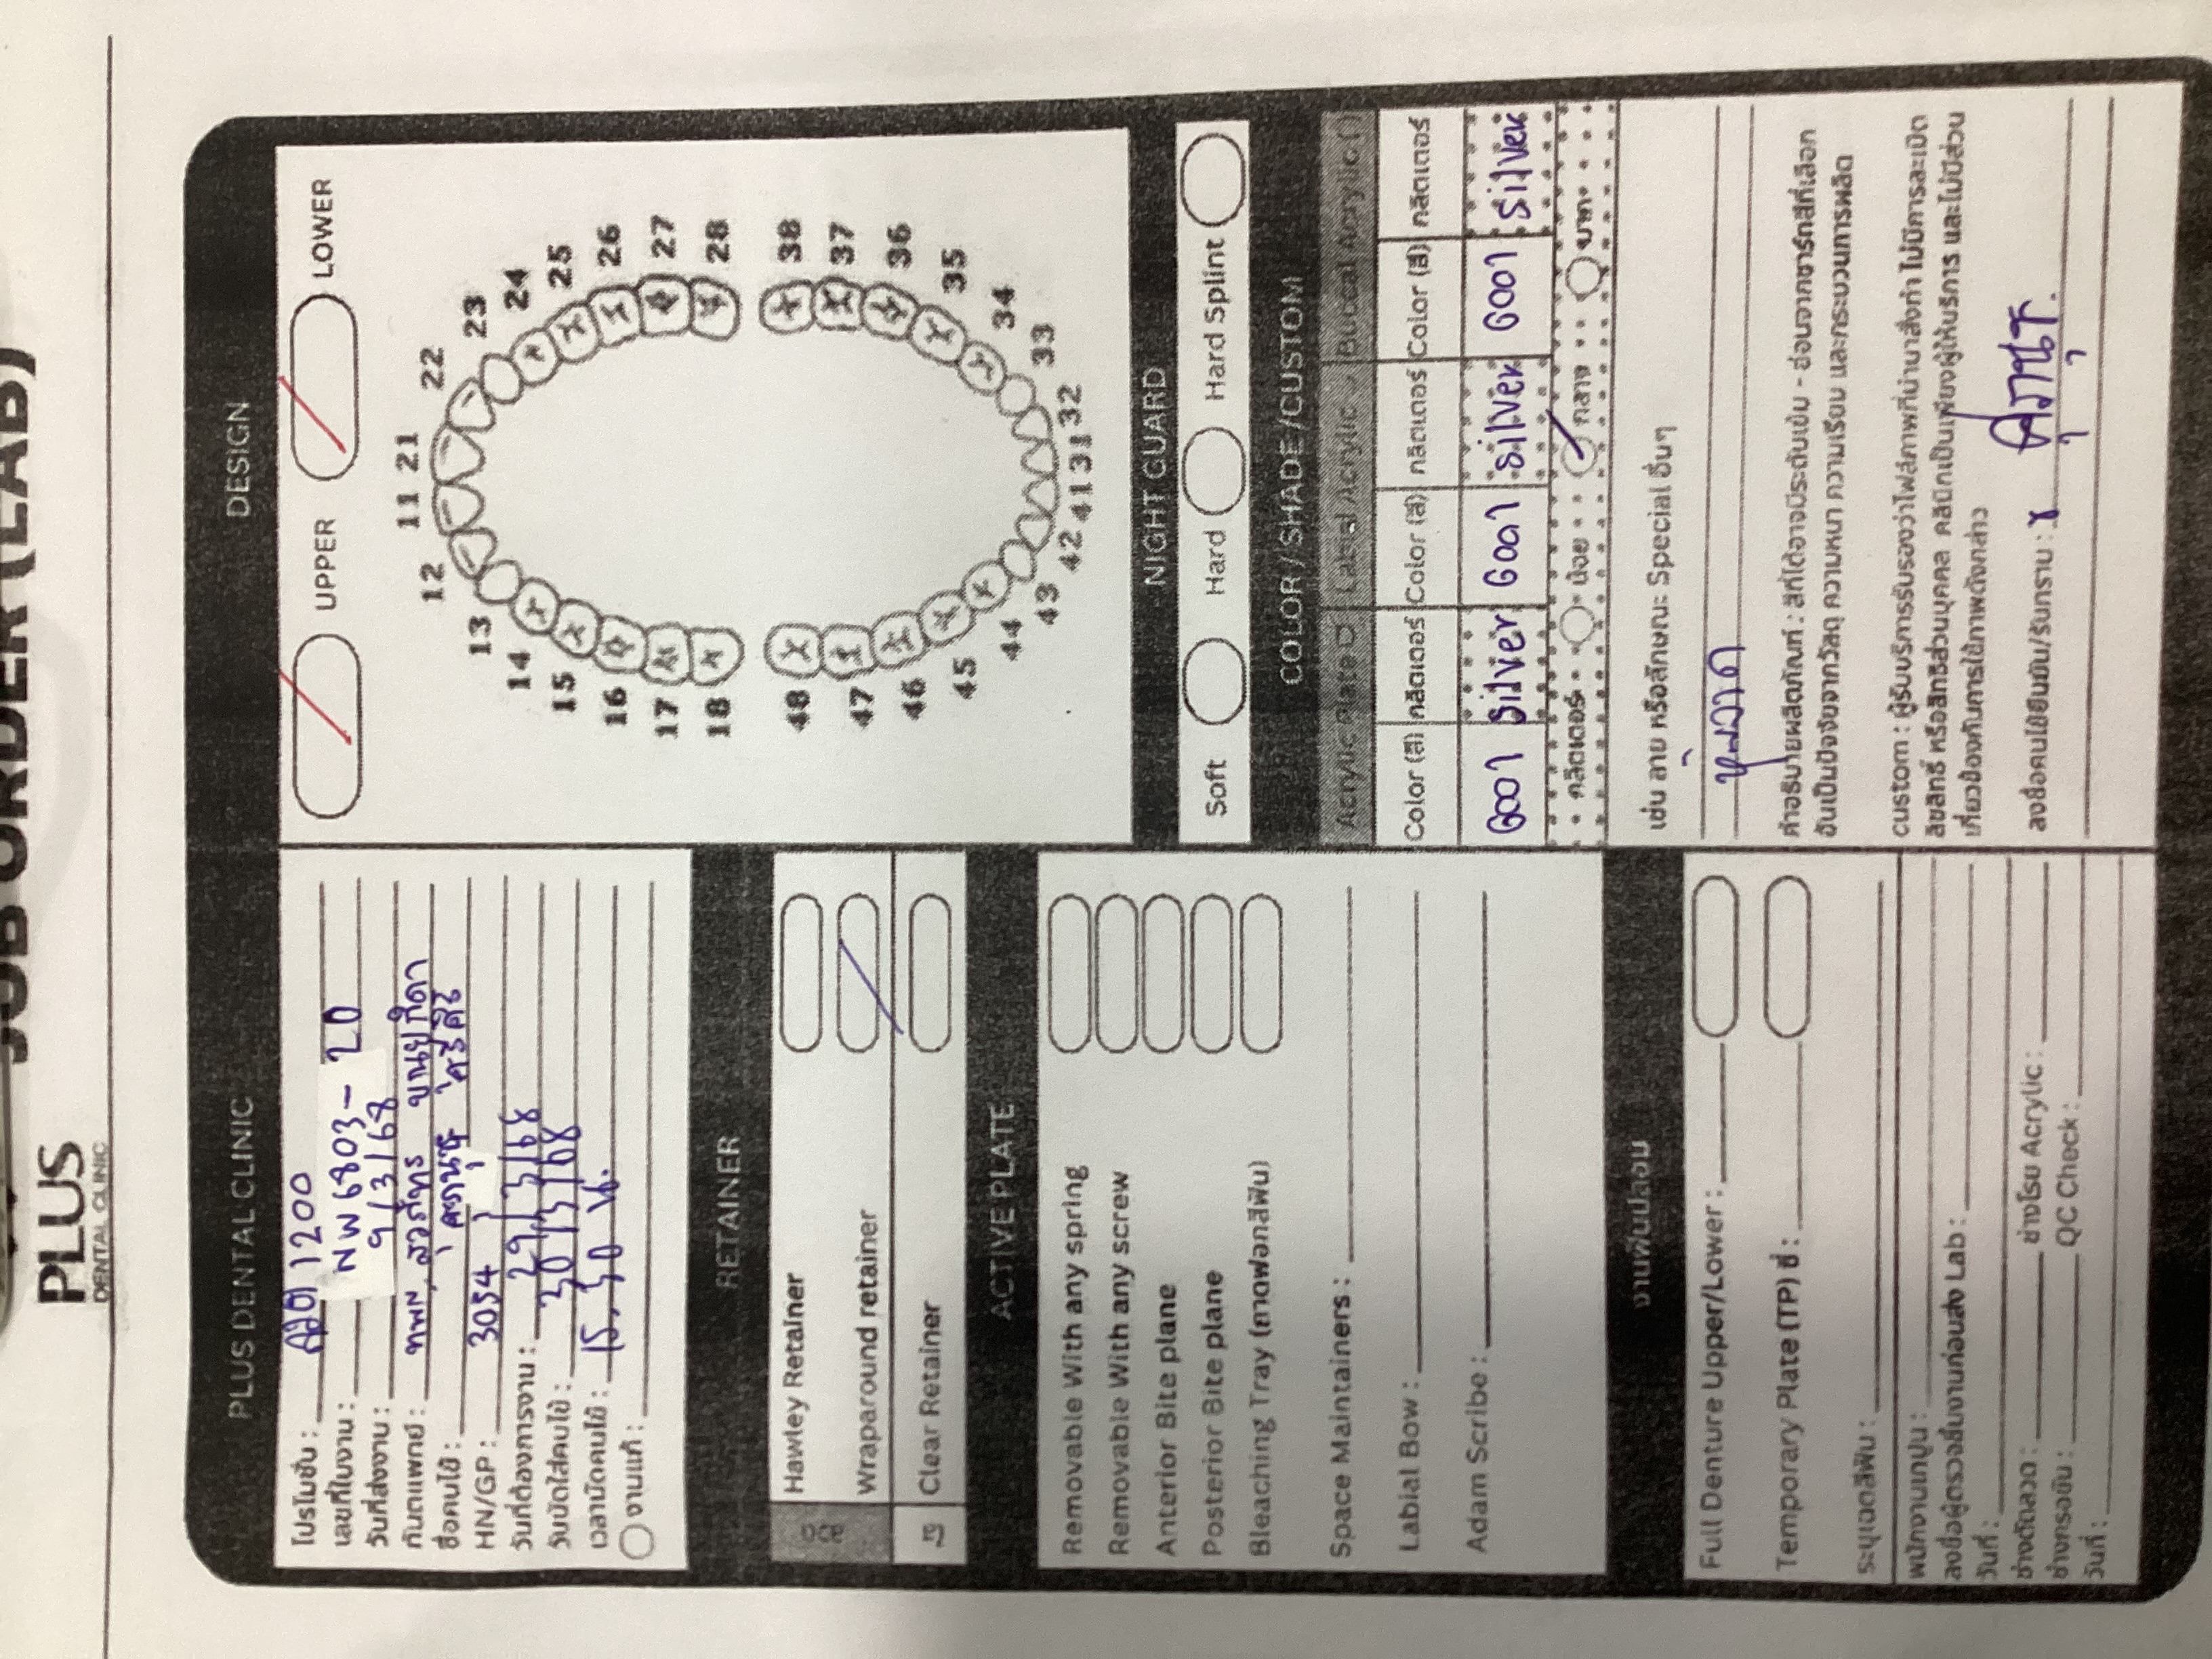 JOB ORDER (LAB)
PLUS
DENTAL CLINIC
PLUS DENTAL CLINIC
โปรโมชั่น : ลวด 1200
เลขที่ใบงาน : NW 6803 - 20
วันที่ส่งงาน : 9/3/68
ทันตแพทย์ : ทพญ.
ชื่อคนไข้ :
HN/GP : 3054
วันที่ต้องการงาน : 29/3/68
วันนัดใส่คนไข้ : 30/3/68
เวลานัดคนไข้ : 15.30 น.
งานแก้ :
RETAINER
ลวด
Hawley Retainer
Wraparound retainer
ใส
Clear Retainer
ACTIVE PLATE
Removable With any spring
Removable With any screw
Anterior Bite plane
Posterior Bite plane
Bleaching Tray (ถาดฟอกสีฟัน)
Space Maintainers :
Labial Bow :
Adam Scribe :
งานฟันปลอม
Full Denture Upper/Lower :
Temporary Plate (TP) ซี่ :
ระบุเฉดสีฟัน :
พนักงานเทปูน :
ลงชื่อผู้ตรวจชิ้นงานก่อนส่ง Lab :
วันที่ :
ช่างดัดลวด : ช่างโรย Acrylic :
ช่างกรอขัด : QC Check :
วันที่ :
DESIGN
UPPER LOWER
11 21
12 22
13 23
14 24
15 25
16 26
17 27
18 28
48 38
47 37
46 36
45 35
44 34
43 33
42 41 31 32
NIGHT GUARD
Soft Hard Hard Splint
COLOR / SHADE /CUSTOM
Acrylic Plate Labial Acrylic Buccal Acrylic
Color (สี) กลิตเตอร์ Color (สี) กลิตเตอร์ Color (สี) กลิตเตอร์
G001 Silver G001 silver G001 silver
กลิตเตอร์ น้อย กลาง มาก
เช่น ลาย หรือลักษณะ Special อื่นๆ
คำอธิบายผลิตภัณฑ์ : สีที่ได้อาจมีระดับเข้ม - อ่อนจากชาร์ทสีที่เลือก
อันเป็นปัจจัยจากวัสดุ ความหนา ความเรียบ และกระบวนการผลิต
custom : ผู้รับบริการรับรองว่าไฟล์ภาพที่นำมาสั่งทำ ไม่มีการละเมิด
ลิขสิทธิ์ หรือสิทธิส่วนบุคคล คลินิกเป็นเพียงผู้ให้บริการ และไม่มีส่วน
เกี่ยวข้องกับการใช้ภาพดังกล่าว
ลงชื่อคนไข้ยืนยัน/รับทราบ : x